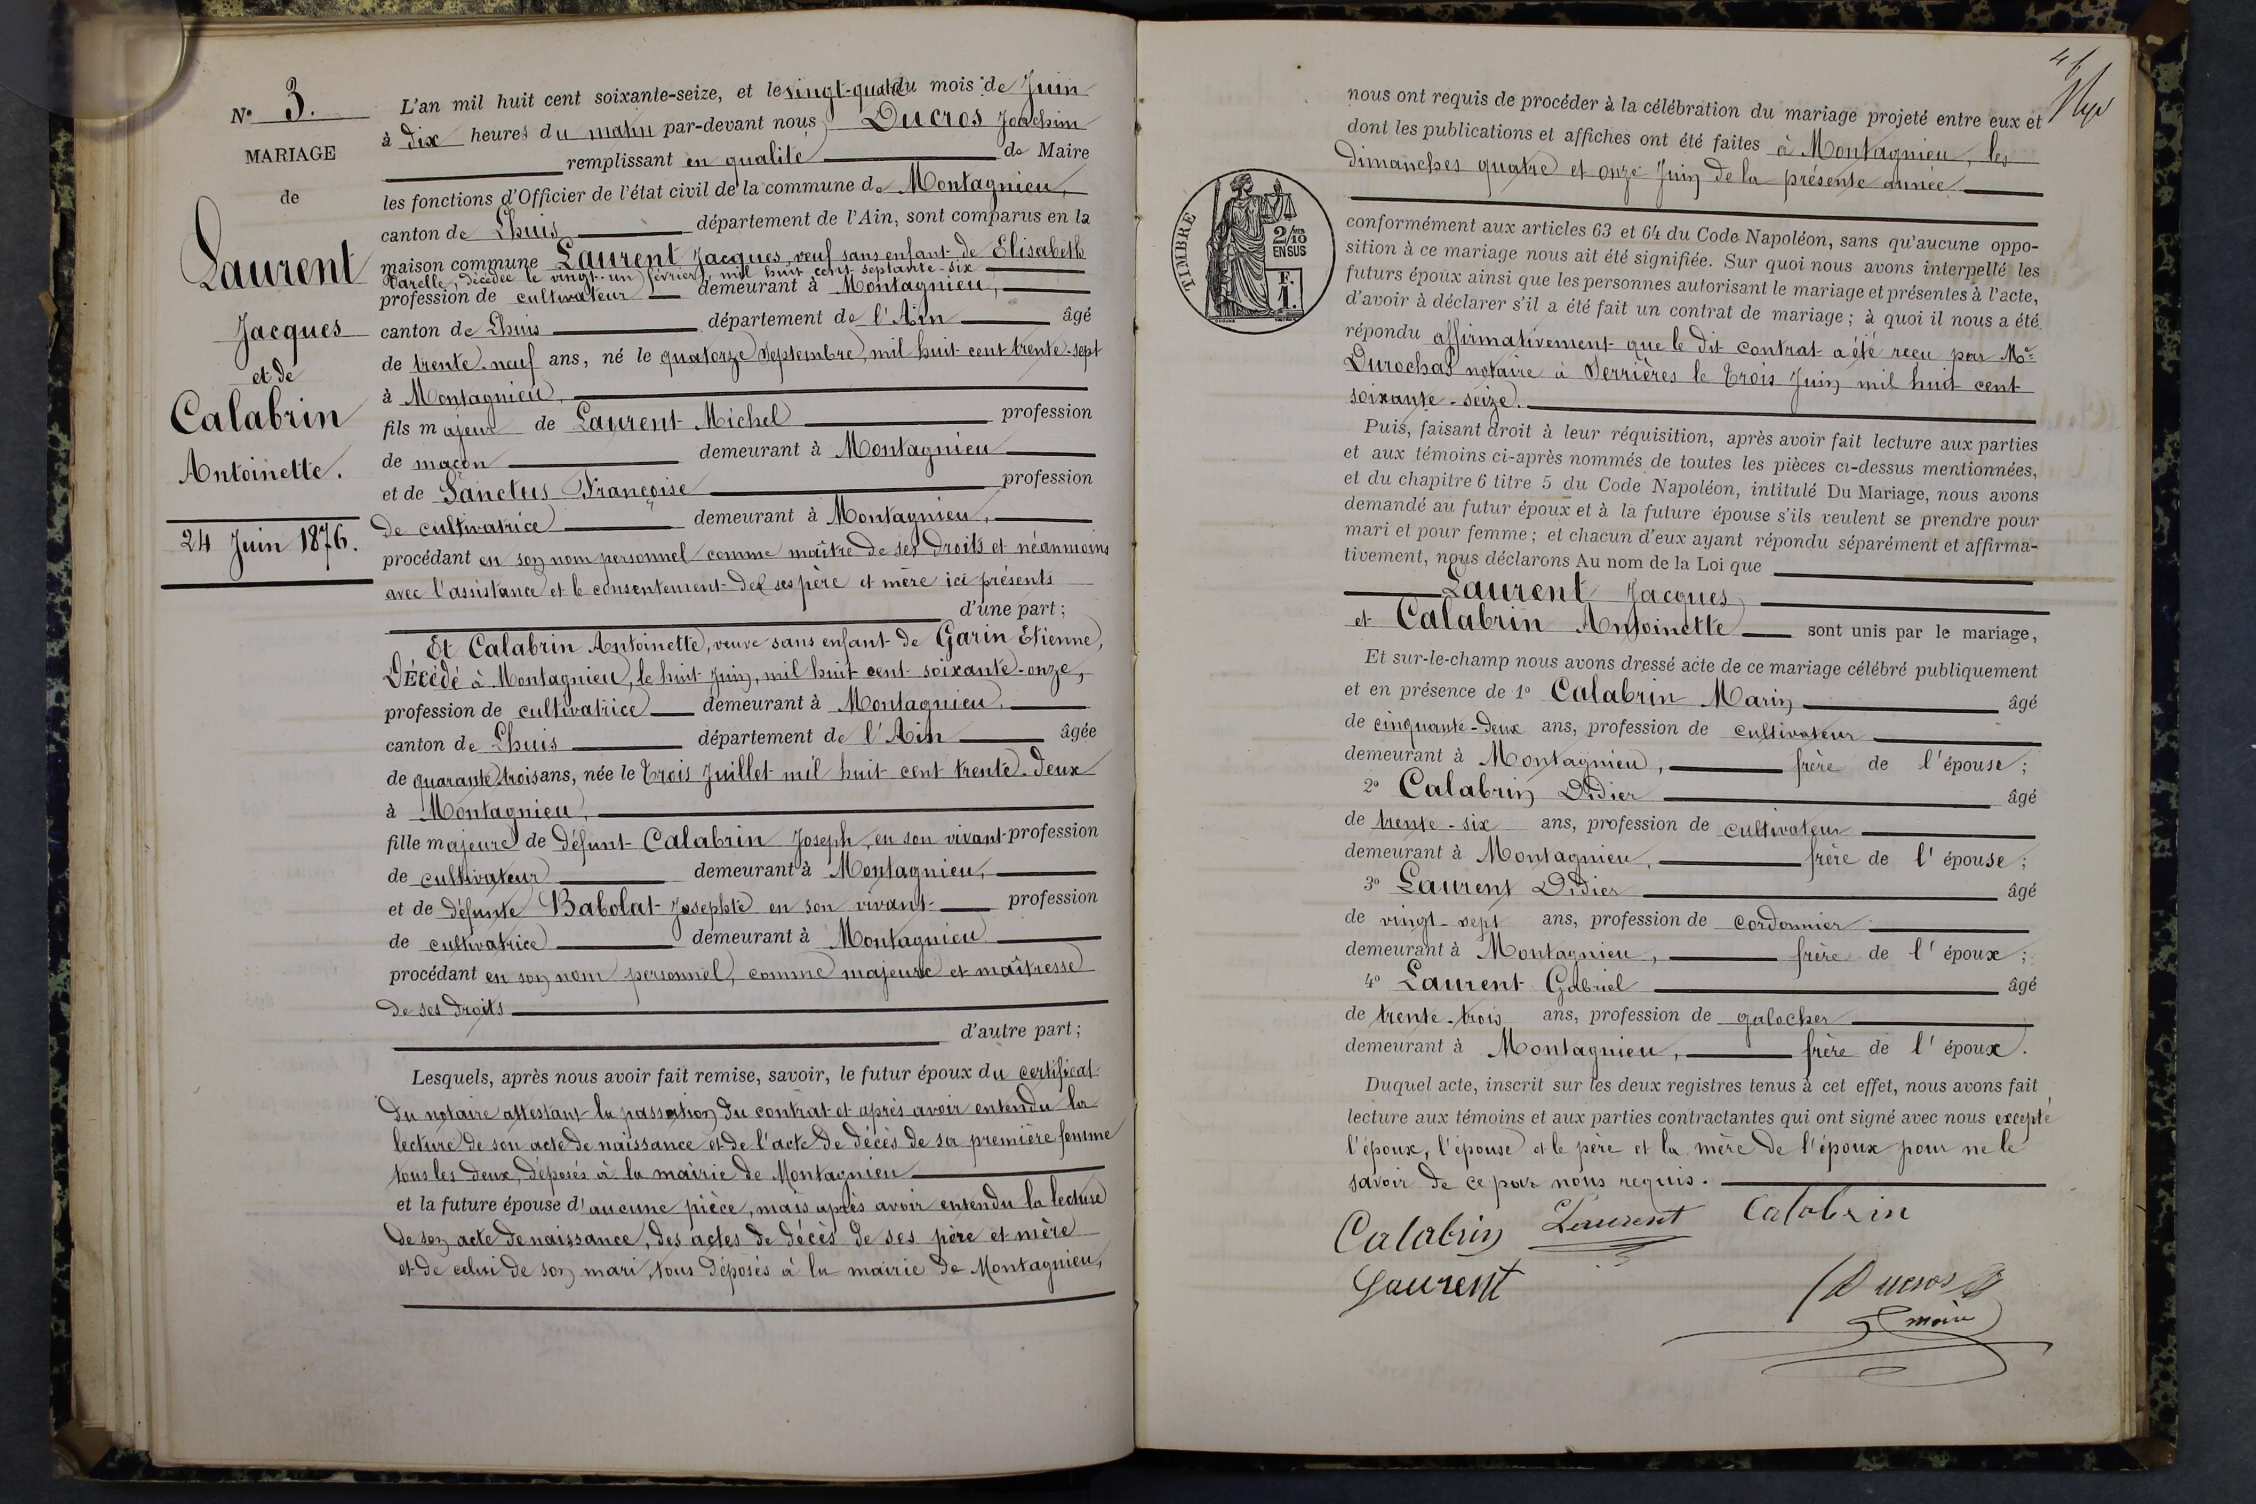 N° 3.
MARIAGE
de
Laurent
Jacques
et de
Calabrin
Antoinette.
24 Juin 1876.
L'an mil huit cent soixante-seize, et le vingt-quatre du mois de Juin
à dix heures du matin par-devant nous Ducros Joachim
remplissant en qualité de Maire
les fonctions d'Officier de l'état civil de la commune de Montagnieu,
canton de Lhuis département de l'Ain, sont comparus en la
maison commune Laurent Jacques, veuf sans enfant de Elisabeth
Varelle, décédée le vingt-un février, mil huit cent septante-six
profession de cultivateur demeurant à Montagnieu,
canton de Lhuis département de l'Ain âgé
de trente-neuf ans, né le quatorze Septembre, mil huit cent trente-sept
à Montagnieu,
fils majeur de Laurent Michel profession
de maçon demeurant à Montagnieu
et de Sanctus Françoise profession
de cultivatrice demeurant à Montagnieu,
procédant en son nom personnel comme maître de ses droits et néanmoins
avec l'assistance et le consentement de ses père et mère ici présents
d'une part;
Et Calabrin Antoinette, veuve sans enfant de Garin Etienne,
Décédé à Montagnieu, le huit Juin, mil huit cent soixante-onze,
profession de cultivatrice demeurant à Montagnieu,
canton de Lhuis département de l'Ain âgée
de quarante trois ans, née le trois Juillet mil huit cent trente-deux
à Montagnieu,
fille majeure de défunt Calabrin Joseph, en son vivant profession
de cultivateur demeurant à Montagnieu,
et de défunte Babolat Josephte en son vivant profession
de cultivatrice demeurant à Montagnieu
procédant en son nom personnel, comme majeure et maîtresse
de ses droits
d'autre part;
Lesquels, après nous avoir fait remise, savoir, le futur époux du certificat
du notaire attestant la passation du contrat et après avoir entendu la
lecture de son acte de naissance et de l'acte de décès de sa première femme
tous les deux déposés à la mairie de Montagnieu
et la future épouse d'aucune pièce, mais après avoir entendu la lecture
de son acte de naissance, des actes de décès de ses père et mère
et de celui de son mari, tous déposés à la mairie de Montagnieu,
46
nous ont requis de procéder à la célébration du mariage projeté entre eux et
dont les publications et affiches ont été faites à Montagnieu, les
dimanches quatre et onze Juin de la présente année
TIMBRE
2/10
EN SUS
F.
1.
conformément aux articles 63 et 64 du Code Napoléon, sans qu'aucune oppo-
sition à ce mariage nous ait été signifiée. Sur quoi nous avons interpellé les
futurs époux ainsi que les personnes autorisant le mariage et présentes à l'acte,
d'avoir à déclarer s'il a été fait un contrat de mariage; à quoi il nous a été
répondu affirmativement que le dit contrat a été reçu par Me
Durochat notaire à Serrières le trois Juin mil huit cent
soixante-seize.
Puis, faisant droit à leur réquisition, après avoir fait lecture aux parties
et aux témoins ci-après nommés de toutes les pièces ci-dessus mentionnées,
et du chapitre 6 titre 5 du Code Napoléon, intitulé Du Mariage, nous avons
demandé au futur époux et à la future épouse s'ils veulent se prendre pour
mari et pour femme; et chacun d'eux ayant répondu séparément et affirma-
tivement, nous déclarons Au nom de la Loi que
Laurent Jacques
et Calabrin Antoinette sont unis par le mariage,
Et sur-le-champ nous avons dressé acte de ce mariage célébré publiquement
et en présence de 1° Calabrin Marin âgé
de cinquante-deux ans, profession de cultivateur
demeurant à Montagnieu, frère de l'épouse;
2° Calabrin Didier âgé
de trente-six ans, profession de cultivateur
demeurant à Montagnieu, frère de l'épouse;
3° Laurent Didier âgé
de vingt-sept ans, profession de cordonnier
demeurant à Montagnieu, frère de l'époux;
4° Laurent Gabriel âgé
de trente-trois ans, profession de galocher
demeurant à Montagnieu, frère de l'époux.
Duquel acte, inscrit sur les deux registres tenus à cet effet, nous avons fait
lecture aux témoins et aux parties contractantes qui ont signé avec nous excepté
l'époux, l'épouse et le père et la mère de l'époux pour ne le
savoir de ce par nous requis.
Calabrin Laurent Calabrin
Laurent
Ducros
maire